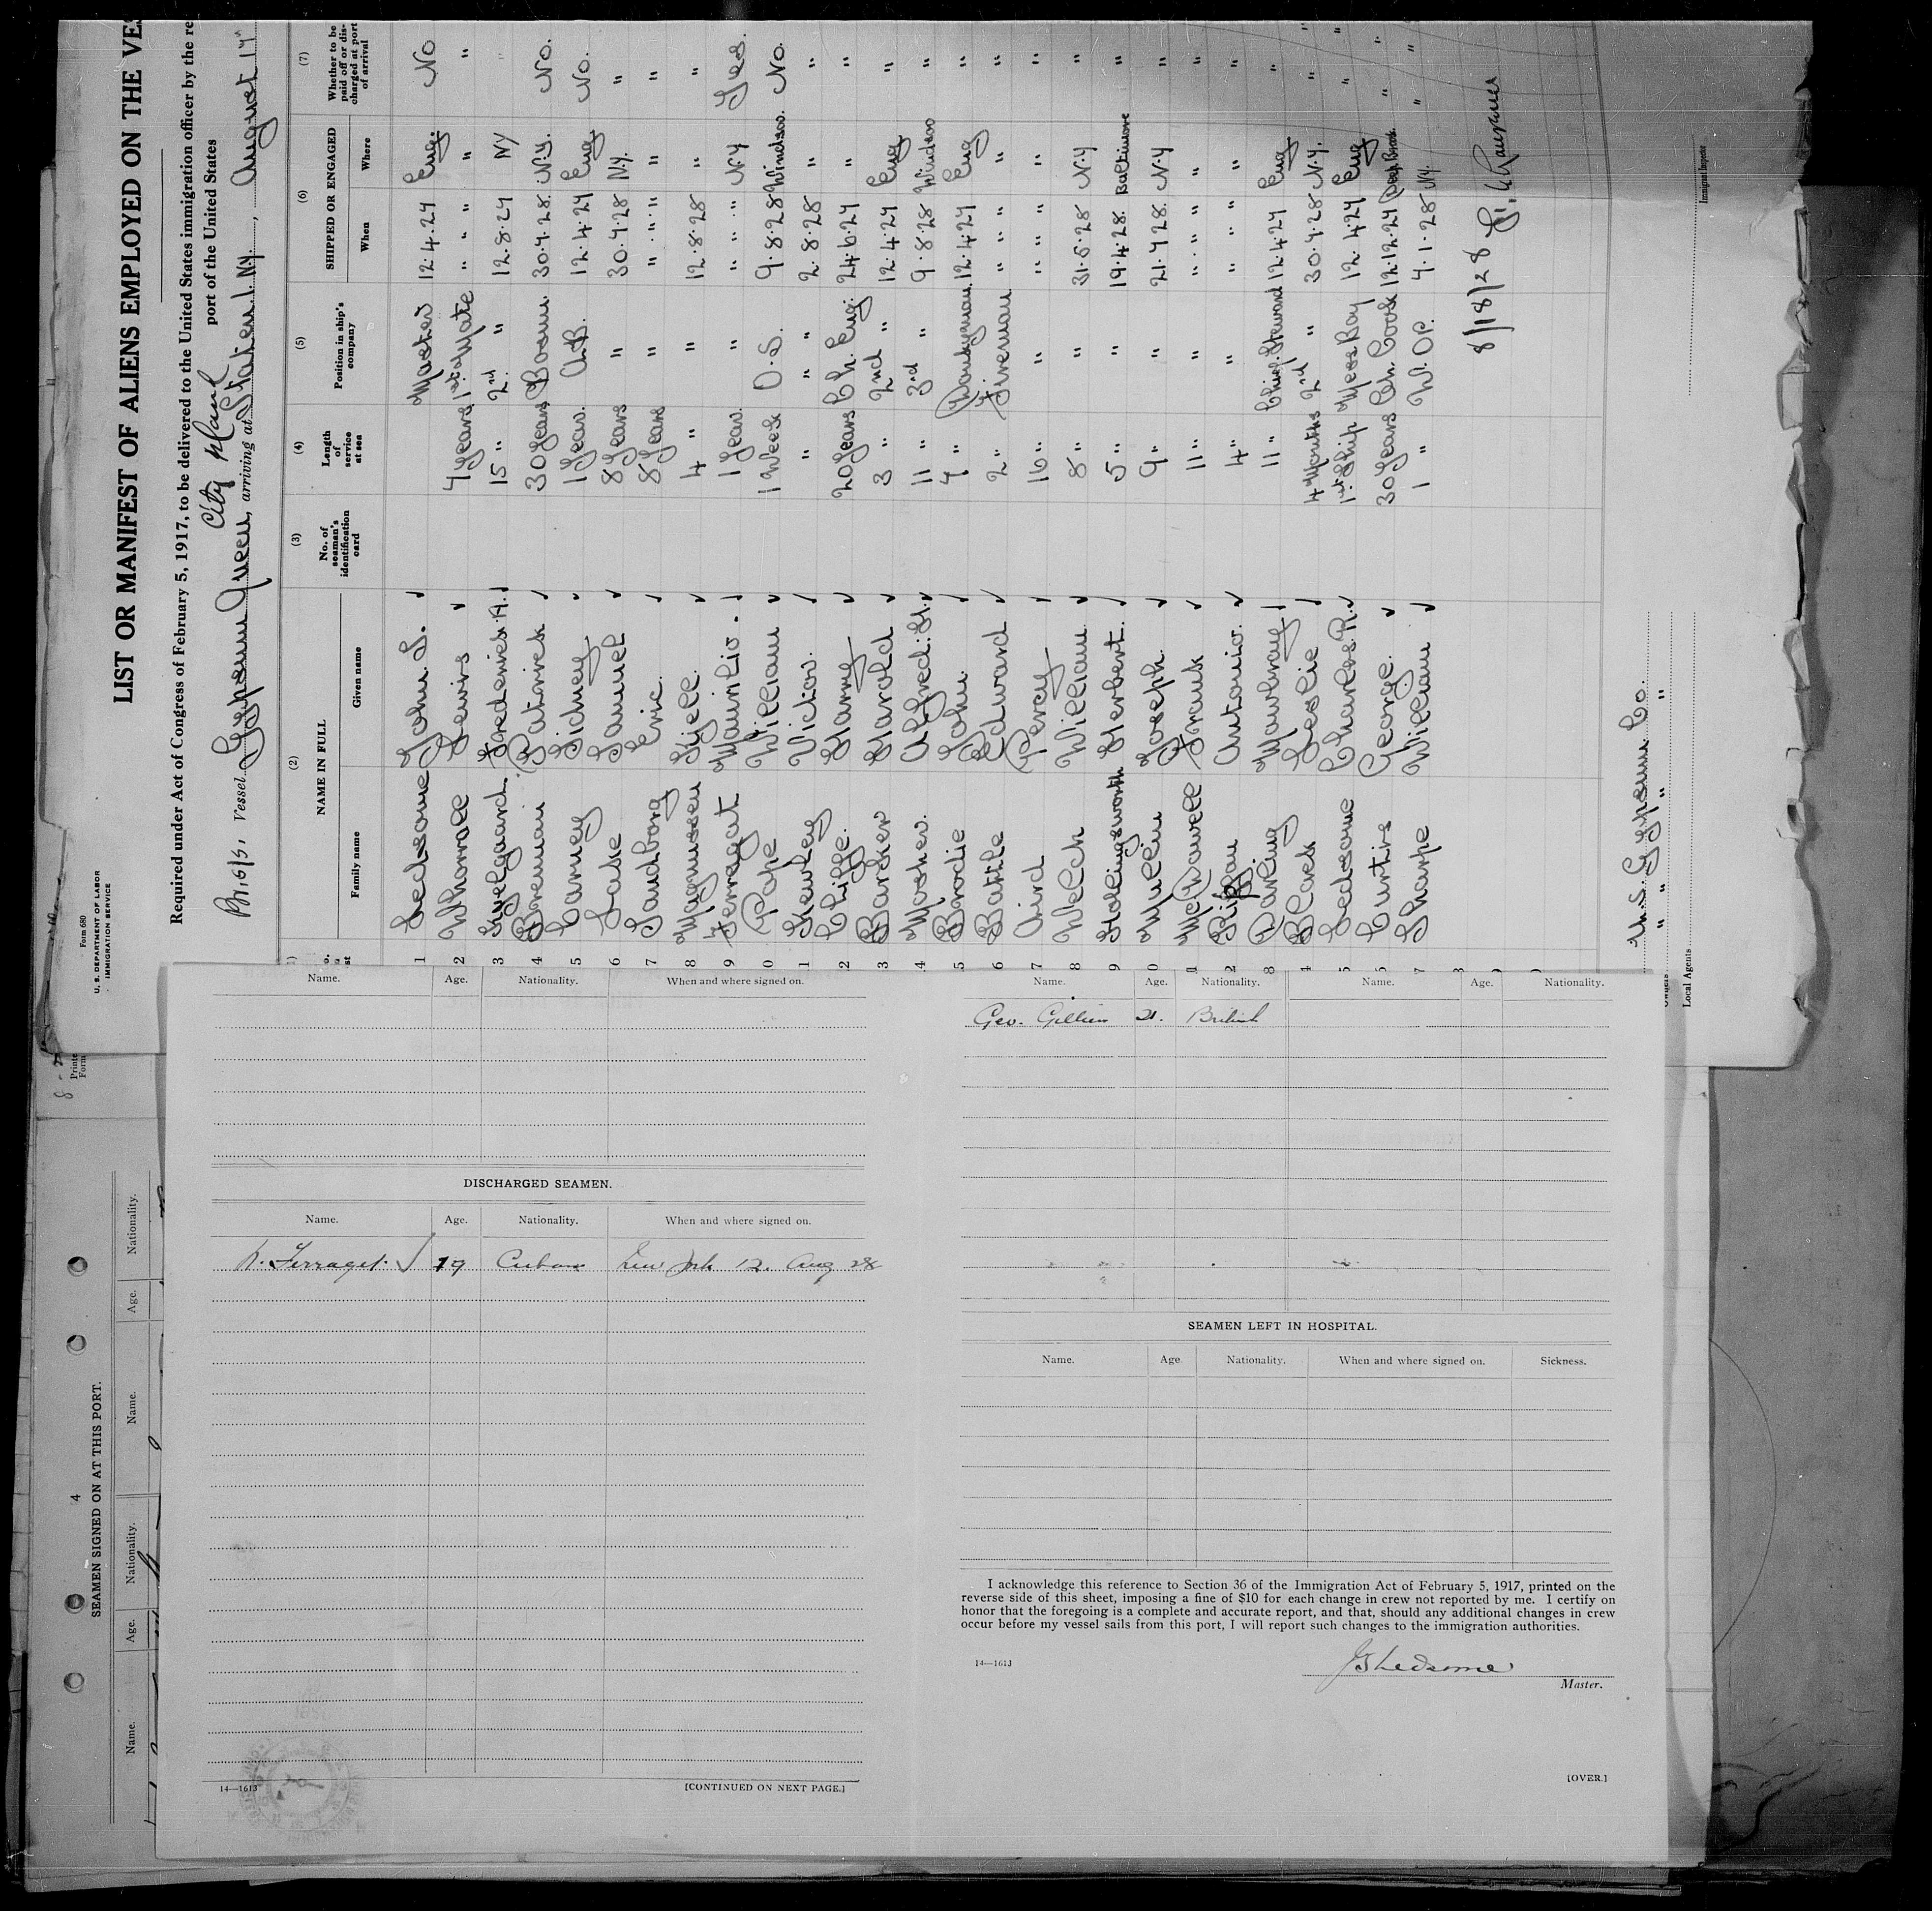 Form 680
U. S. DEPARTMENT OF LABOR
IMMIGRATION SERVICE
LIST OR MANIFEST OF ALIENS EMPLOYED ON THE VE
Required under Act of Congress of February 5, 1917, to be delivered to the United States immigration officer by the re
port of the United States
Br. S/S. Vessel Gypsum Queen, arriving at Staten I. N.Y., August 17
(2) (3) (4) (5) (6) (7)
NAME IN FULL No. of seaman's identification card Length of service at sea Position in ship's company SHIPPED OR ENGAGED Whether to be paid off or discharged at port of arrival
Family name Given name When Where
1 Ledsome John S. Master 12.4.27 Eng. No
2 Lewis 7 Years 1st Mate " " " " "
3 Frederick A. 15 " 2nd " 12.8.27 NY "
4 Brennan Patrick 30 Years Bosun. 30.7.28. N.Y. No.
5 Sidney 1 Year. A.B. 12.4.27 Eng No.
6 Samuel 8 Years " 30.7.28 N.Y. "
7 Sandborg Eric. 8 Years " " " " " "
8 Magnussen 4 " " 12.8.28 " "
9 Ferragat 1 Year. " " " " N.Y Yes.
0 Pope William 1 Week O.S. 9.8.28 Windsor. No.
1 Victor. " " " 2.8.28 " "
2 Cliffe. Harry 20 Years Ch. Eng. 24.6.27 " "
3 Harold 3 " 2nd " 12.4.27 Eng "
4 Mosher. Alfred. 11 " 3rd " 9.8.28 Windsor "
5 Brodie John 7 " Donkeyman. 12.4.27 Eng "
6 Battle Edward 2 " Fireman " " " " "
7 Aird Percy 16 " " " " " "
8 Welch William 8 " " 31.5.28 N.Y "
9 Hollingsworth Herbert. 5 " " 19.4.28. Baltimore "
0 Mullin Joseph. 9 " " 21.7.28. N.Y "
1 Frank 11 " " " " " " "
2 Antonio. 4 " " " " " " "
3 Darling Mowbray 11 " Chief. Steward 12.4.27 Eng "
4 Black Leslie 4 Months 2nd " 30.7.28 N.Y. "
5 Ledsome Charles R. 1st Ship Mess Boy 12.4.27 Eng "
6 Curtis George. 30 Years Ch. Cook 12.12.27 "
7 Sharpe William 1 " W. OP. 4.1.28 N.Y. "
8/18/28
U.S. Gypsum Co.
" " " "
Owners
Local Agents
Immigrant Inspector
4
SEAMEN SIGNED ON AT THIS PORT.
Name. Age. Nationality. Name. Age. Nationality.
Name. Age. Nationality. When and where signed on.
DISCHARGED SEAMEN.
Name. Age. Nationality. When and where signed on.
Ferraget. 19 Cuban New York 12. Aug 28
14—1613
[CONTINUED ON NEXT PAGE.]
Name. Age. Nationality. Name. Age. Nationality.
Geo. 21. British
SEAMEN LEFT IN HOSPITAL.
Name. Age. Nationality. When and where signed on. Sickness.
I acknowledge this reference to Section 36 of the Immigration Act of February 5, 1917, printed on the
reverse side of this sheet, imposing a fine of $10 for each change in crew not reported by me. I certify on
honor that the foregoing is a complete and accurate report, and that, should any additional changes in crew
occur before my vessel sails from this port, I will report such changes to the immigration authorities.
14—1613
JS Ledsome
Master.
[OVER.]